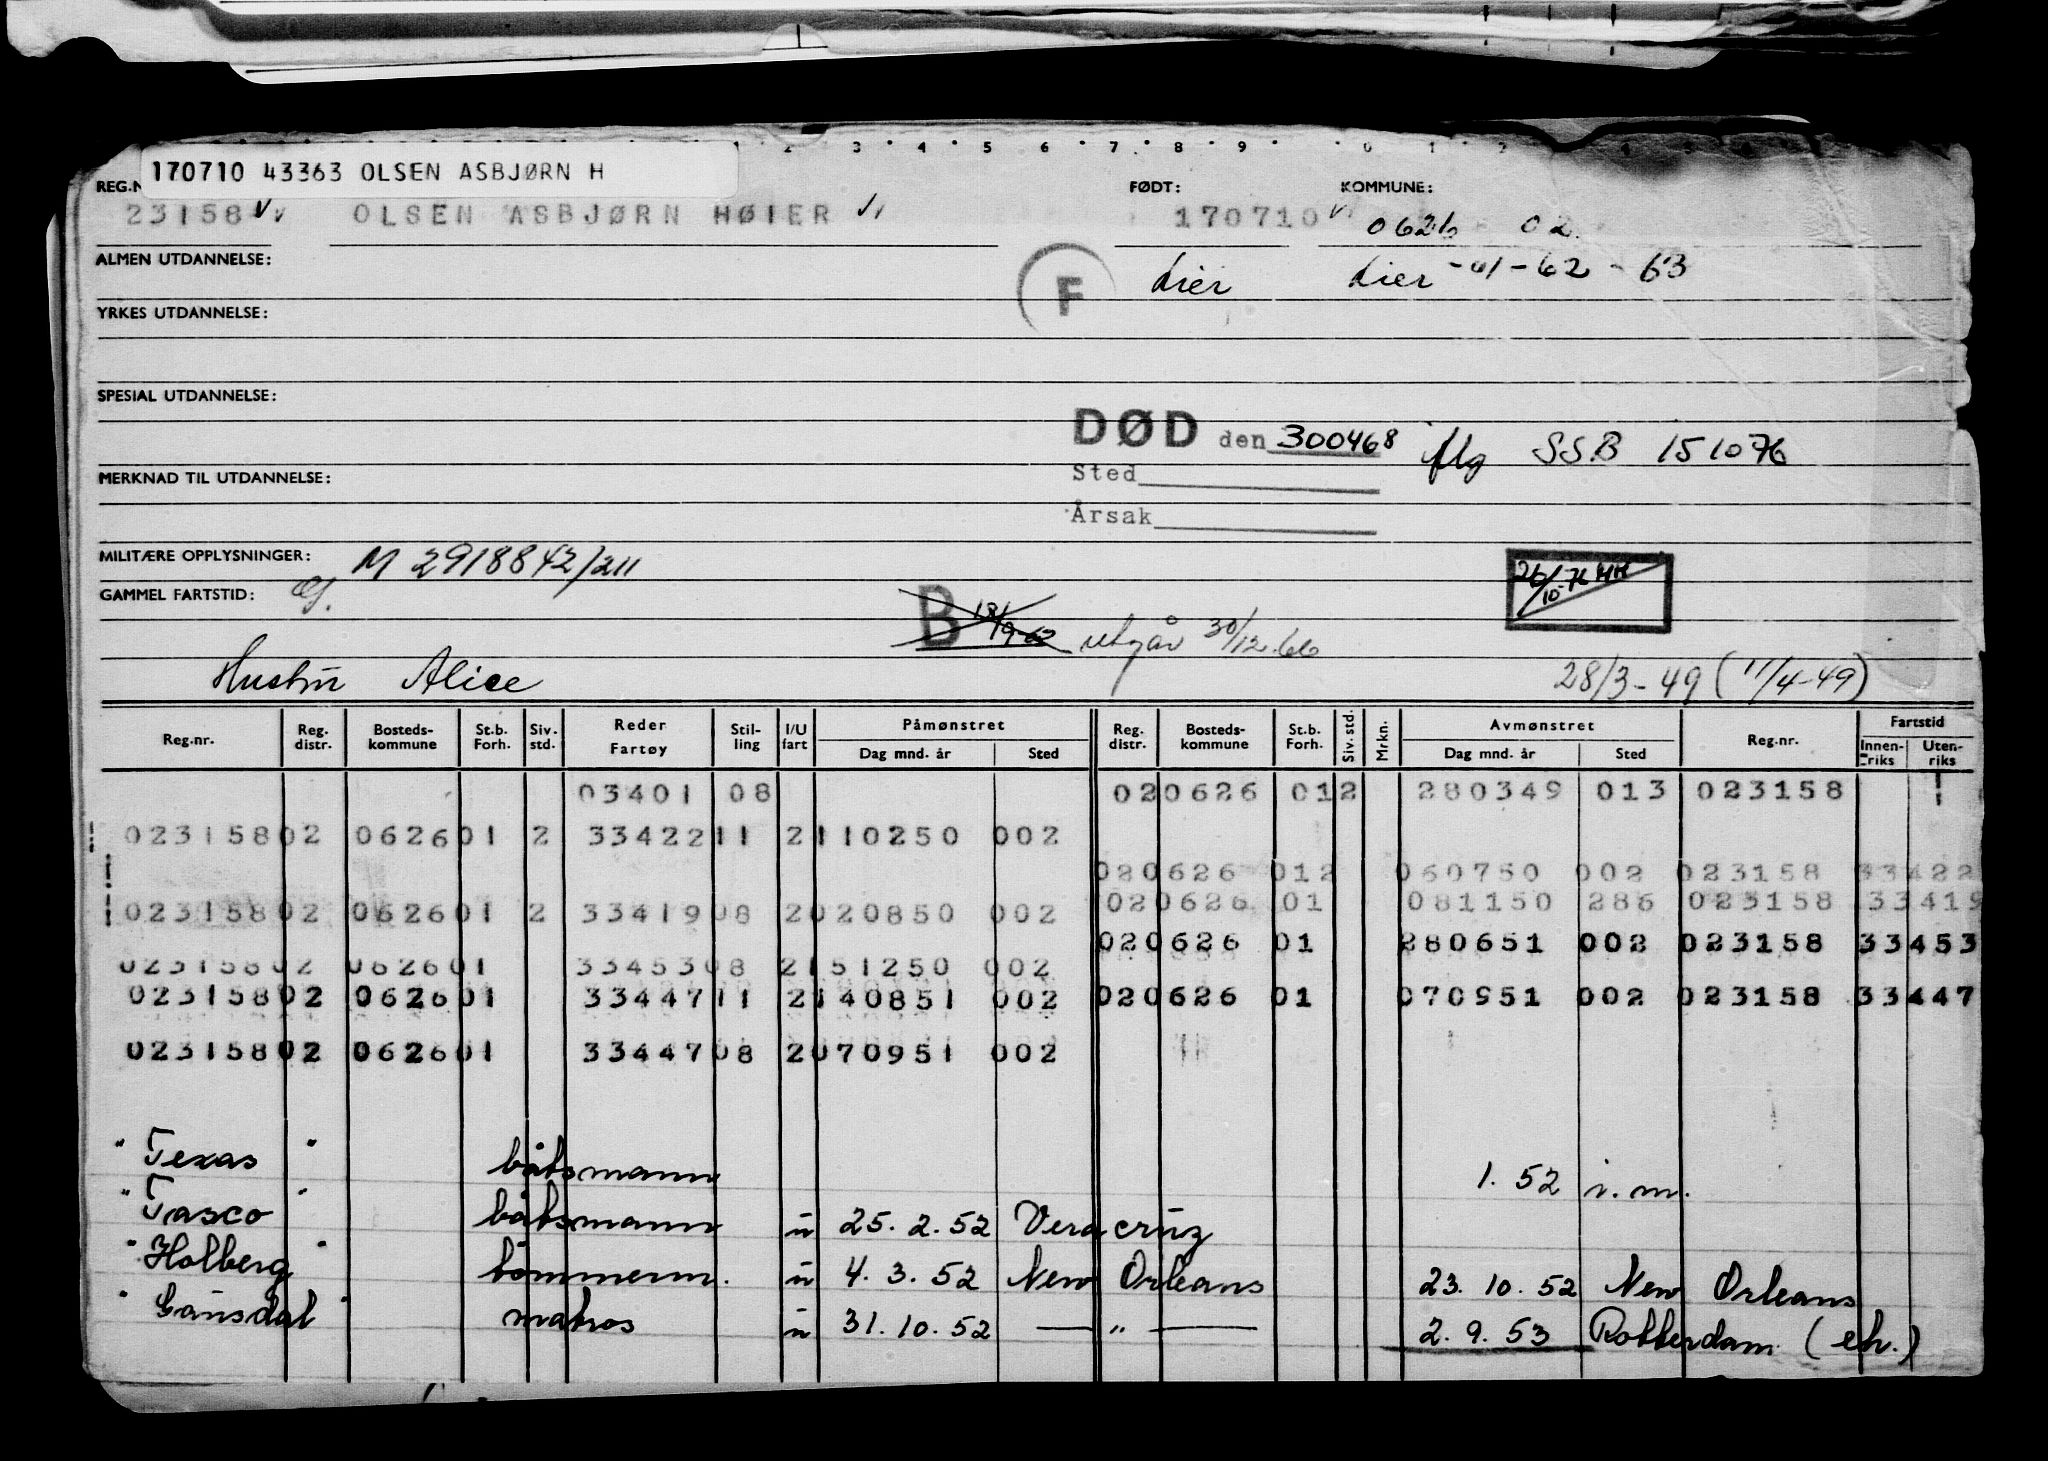 170710 43363 OLSEN ASBJØRN H
1 2 3 4 5 6 7 8 9 0 1 2
REG.N FØDT: KOMMUNE:
23158 OLSEN ASBJØRN HØIER 170710 0626 02
ALMEN UTDANNELSE: F Lier Lier -61-62-63
YRKES UTDANNELSE:
SPESIAL UTDANNELSE:
DØD den 300468 flg SSB 151076
MERKNAD TIL UTDANNELSE: Sted
Årsak
MILITÆRE OPPLYSNINGER: M 2918842/211
26/10-76 HH
GAMMEL FARTSTID:
B 18/9-62 utgår 30/12.66
Hustru Alice 28/3-49 (11/4-49)
Reg.nr. Reg. distr. Bosteds-kommune St.b. Forh. Siv. std. Reder Fartøy Stil-ling I/U fart Påmønstret Dag mnd. år Sted Reg. distr. Bosteds-kommune St.b. Forh. Siv. std. Mrkn. Avmønstret Dag mnd. år Sted Reg.nr. Fartstid Innen-riks Uten-riks
03401 08 020626 012 280349 013 023158
02315802 062601 2 3342211 2110250 002
020626 012 060750 002 023158 33422
02315802 062601 2 3341908 2020850 002 020626 01 081150 286 023158 33419
020626 01 280651 002 023158 33453
02315802 062601 3345308 2151250 002
02315802 062601 3344711 2140851 002 020626 01 070951 002 023158 33447
02315802 062601 3344708 2070951 002
" Texas " båtsmann 1. 52 i.m.
" Tasco " båtsmann u 25. 2. 52 Veracruz
" Holberg " tømmerm. u 4. 3. 52 New Orleans 23. 10. 52 New Orleans
" Gausdal " matros u 31. 10. 52 — " — 2. 9. 53 Rotterdam (eh.)